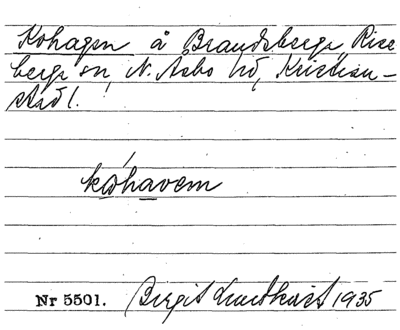 Kohagen å Brandsberga, Rise
berga sn, N. Åsbo hd, Kristian-
stad l.
kóhavem
Nr 5501. Birgit Lundkvist 1935